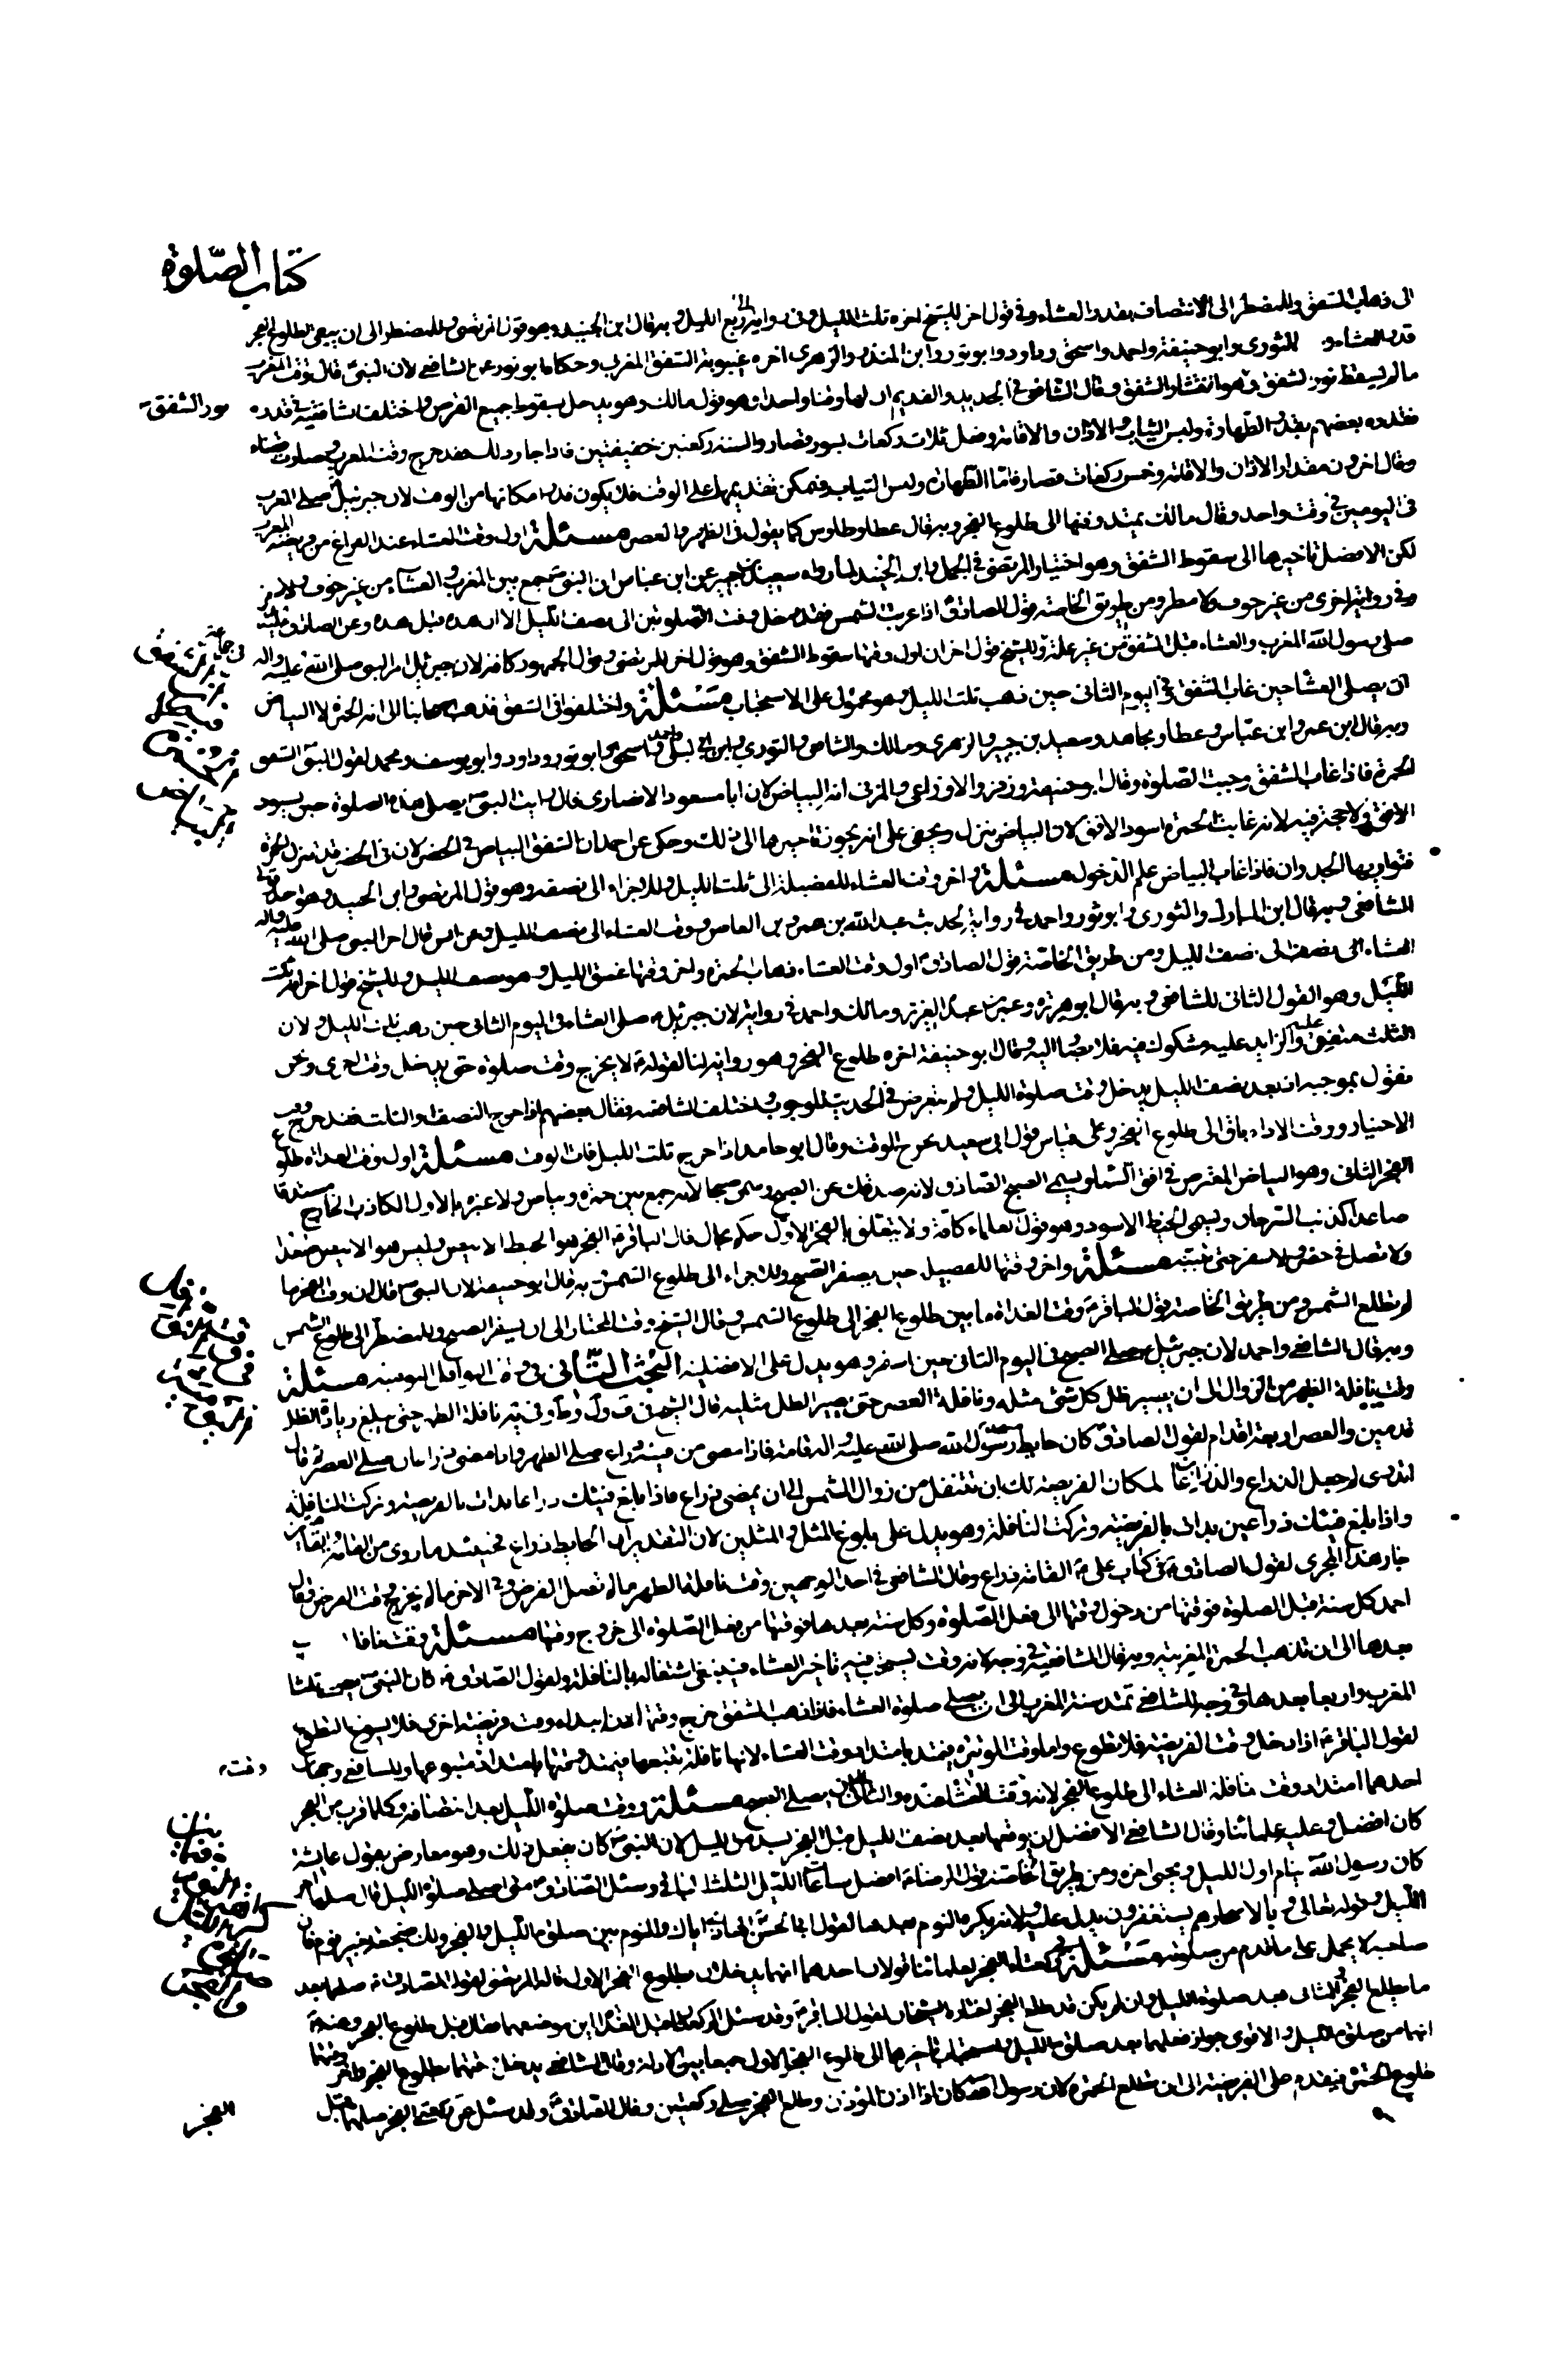 كتاب الصلوة
الى ذهاب الشفق وللمضطر الى الانتصاف بقدر العشاء وفي قول اخر للشيخ اخره ثلث الليل وفى رواية ربع الليل وبه قال ابن الجنيد وهو قول المرتضى وللمضطر الى ان يبقى لطلوع الفجر
قدر العشاء و الثورى وابو حنيفة واحمد واسحق وداود وابو ثور وابن المنذر والزهرى اخره غيبوبة الشفق المغربى وحكاه ابو ثور عن الشافعى لان النبى قال وقت المغرب
ما لم يسقط ثور الشفق وهو انتشار الشفق وقال الشافعى في الجديد والقديم ان لها وقتا واحدا وهو قول مالك وهو يدخل بسقوط جميع القرص واختلف الشافعية في قدره
ثور الشفق
فقدره بعضهم بقدر الطهارة ولبس الثياب والاذان والاقامة وفعل ثلاث ركعات بسور قصار والسنة ركعتين خفيفتين فاذا جاوز ذلك فقد خرج وقت المغرب وصارت قضاء
وقال اخرون مقدار الاذان والاقامة وخمس ركعات قصار فاما الطهارة ولبس الثياب فيمكن تقديمها على الوقت فلا يكون قدر امكانها من الوقت لان جبرئيل صلى المغرب
فى اليومين في وقت واحد وقال مالك يمتد وقتها الى طلوع الفجر وبه قال عطا وطاوس كما يقول فى الظهر والعصر مسئلة اول وقت العشاء عند الفراغ من فريضة المغرب
لكن الافضل تاخيرها الى سقوط الشفق وهو اختيار المرتضى في الجمل وابن الجنيد لما رواه سعيد بن جبير عن ابن عباس ان النبى جمع بين المغرب والعشاء من غير خوف ولا سفر
وفي رواية اخرى من غير خوف ولا مطر ومن طريق الخاصة قول الصادق اذا غربت الشمس فقد دخل وقت الصلوتين الى نصف الليل الا ان هذه قبل هذه وعن الصادق
صلى رسول الله المغرب والعشاء قبل الشفق من غير علة وللشيخ قول اخر ان اول وقتها سقوط الشفق وهو قول اخر للمرتضى وقول الجمهور كافة لان جبرئيل امر النبى صلى الله عليه واله
ان يصلى العشاء حين غاب الشفق وفى اليوم الثانى حين ذهب ثلث الليل وهو محمول على الاستحباب مسئلة واختلفوا فى الشفق فذهب اصحابنا الى انه الحمرة لا البياض
وبه قال ابن عمر وابن عباس وعطا ومجاهد وسعيد بن جبير والزهرى ومالك والشافعى والثورى وابن ابى ليلى واحمد واسحق وابو ثور وداود وابو يوسف ومحمد لقول النبى الشفق
الحمرة فاذا غاب الشفق وجبت الصلوة وقال ابو حنيفة وزفر والاوزاعى والمزنى انه البياض لان ابا مسعود الانصارى قال رايت النبى يصلى هذه الصلوة حين يسود
الافق ولا حجة فيه لانه غابت الحمرة اسود الافق لان البياض ينزل ويخفى على انه يجوز تاخيرها الى ذلك وحكى عن احمد ان الشفق البياض فى الحضر لان فى الحضر قد تنزل الحمرة
فتواريها الجدران فاذا غاب البياض علم الدخول مسئلة واخر وقت العشاء للفضيلة الى ثلث الليل وللاجزاء الى نصفه وهو قول المرتضى وابن الجنيد وهو احد قولى
الشافعى وبه قال ابن المبارك والثورى وابو ثور واحمد فى رواية لحديث عبد الله بن عمرو بن العاص وقت العشاء الى نصف الليل وعن انس قال اخر النبى صلى الله عليه واله
العشاء الى نصف الليل ومن طريق الخاصة قول الصادق اول وقت العشاء ذهاب الحمرة واخر وقتها غسق الليل وهو نصف الليل وللشيخ قول اخر انه ثلث
الليل وهو القول الثانى للشافعى وبه قال ابو هريرة وعمر بن عبد العزيز ومالك واحمد فى رواية لان جبرئيل صلى العشاء فى اليوم الثانى حين ذهب ثلث الليل ولان
الثلث متفق عليه والزايد عليه مشكوك فيه فلا يصار اليه وقال ابو حنيفة اخره طلوع الفجر وهو رواية لنا لقوله لا يخرج وقت صلوة حتى يدخل وقت اخرى ونحن
نقول بموجبه ان بعد نصف الليل يدخل وقت صلوة الليل ولم يتعرض فى الحديث للوجوب واختلف الشافعية فقال بعضهم اذا خرج النصف او الثلث فقد خرج وقت
الاختيار ووقت الاداء باق الى طلوع الفجر وعلى قياس قول ابى سعيد يخرج الوقت وقال ابو حامد اذا خرج ثلث الليل فات الوقت مسئلة اول وقت الغداة طلوع
الفجر الثانى وهو البياض المعترض فى افق السماء ويسمى الصبح الصادق لانه صدقك عن الصبح وسمى صبحا لانه جمع بين حمرة وبياض ولا عبرة بالاول الكاذب الخارج مستدقا
صاعدا كذنب السرحان ويسمى الخيط الاسود وهو قول العلماء كافة ولا يتعلق بالفجر الاول حكم بحال قال الباقر الفجر هو الخيط الابيض وليس هو الابيض صعدا
ولا تصل فى حضر ولا سفر حتى تتبينه مسئلة واخر وقتها للفضيلة حين يسفر الصبح وللاجزاء الى طلوع الشمس وبه قال ابو حنيفة لان النبى قال ان وقت الفجر ما
لم تطلع الشمس ومن طريق الخاصة قول الباقر وقت الغداة ما بين طلوع الفجر الى طلوع الشمس وقال الشيخ وقت المختار الى ان يسفر الصبح وللمضطر الى طلوع الشمس
وبه قال الشافعى واحمد لان جبرئيل صلى الصبح فى اليوم الثانى حين اسفر وهو يدل على الافضلية البحث الثانى فى وقت النوافل اليومية مسئلة
وقت نافلة الظهر من الزوال الى ان يصير ظل كل شئ مثله ونافلة العصر حتى يصير الظل مثليه قال الشيخ فى
قدمين والعصر اربعة اقدام لقول الصادق كان حايط مسجد رسول الله صلى الله عليه واله قامة فاذا مضى من فيئه ذراع صلى الظهر واذا مضى ذراعان صلى العصر ثم قال
اتدرى لم جعل الذراع والذراعان لمكان الفريضة لك ان تتنفل من زوال الشمس الى ان يمضى ذراع فاذا بلغ فيئك ذراعا بدات بالفريضة وتركت النافلة
واذا بلغ فيئك ذراعين بدات بالفريضة وتركت النافلة وهو يدل على بلوغ المثل والمثلين لان التقدير ان الحايط ذراع فحينئذ ما روى من القامة والقامتين
جار هذا المجرى لقول الصادق فى كتاب على القامة ذراع وقال الشافعى فى احد الوجهين وقت نافلة الظهر ما لم تصل الفرض وفى الاخر ما لم يخرج وقت الفرض وقال
احمد كل سنة قبل الصلوة فوقتها من دخول وقتها الى فعل الصلوة وكل سنة بعدها فوقتها من فعل الصلوة الى خروج وقتها مسئلة وقت نافلة
بعدها الى ان تذهب الحمرة المغربية وبه قال الشافعية فى وجه لانه وقت يستحب فيه تاخير العشاء فينبغى اشتغاله بالنافلة ولقول الصادق كان النبى يصلى ثلثا
المغرب واربعا بعدها وفى وجه للشافعى تمتد سنة المغرب الى ان يصلى صلوة العشاء فاذا ذهب الشفق خرج وقتها لانه ابتداء وقت فريضة اخرى فلا يسوغ التطوع
لقول الباقر اذا دخل وقت الفريضة فلا تطوع واما وقت الوتيرة فيمتد بامتداد وقت العشاء لانها نافلة تتبعها فيمتد وقتها بامتداد متبوعها وللشافعى وجهان
وقت
احدهما امتداد وقت نافلة العشاء الى طلوع الفجر لانه وقت العشاء عنده والثانى الى ان يصلى الصبح مسئلة ووقت صلوة الليل بعد انتصافه وكلما قرب من الفجر
كان افضل وعليه علمائنا وقال الشافعى الافضل ان يوقعها بعد نصف الليل قبل الفجر بسدس الليل لان النبى كان يفعل ذلك وهو معارض بقول عايشة
كان رسول الله ينام اول الليل ويحيى اخره ومن طريق الخاصة قول الرضا افضل ساعات الليل الثلث الباقى وسئل الصادق متى اصلى صلوة الليل قال صلها اخر
الليل وقوله تعالى وبالاسحار هم يستغفرون يدل عليه ولانه يكره النوم بعدها لقول ابى الحسن الهادى اياك والنوم بين صلوة الليل والفجر ولكن ضجعة بغير نوم فان
صاحبه لا يحمد على ما قدم من صلوته مسئلة ركعتا الفجر لعلمائنا قولان احدهما انهما يدخلان بطلوع الفجر الاول قاله المرتضى لقول الصادق صلهما بعد
ما يطلع الفجر والثانى بعد صلوة الليل وان لم يكن قد طلع الفجر اختاره الشيخان لقول الباقر وقد سئل الركعتان اللتان قبل الغداة اين موضعهما فقال قبل طلوع الفجر وعنه
انهما من صلوة الليل والاقوى جواز فعلهما بعد صلوة الليل واستحباب تاخيرهما الى طلوع الفجر الاول جمعا بين الادلة وقال الشافعى يدخل وقتهما بطلوع الفجر واخر وقتهما
طلوع الحمرة فيقدم على الفريضة الى ان تطلع الحمرة لان رسول الله كان اذا اذن المؤذن وطلع الفجر صلى ركعتين وقال الصادق وقد سئل عن ركعتى الفجر صلهما قبل
الفجر